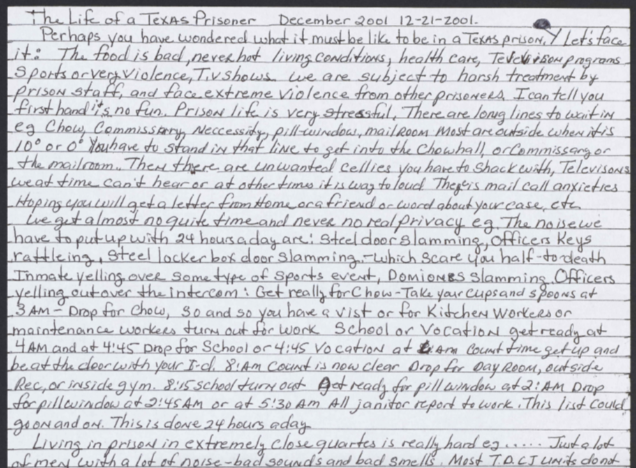 The Life of a Texas Prisoner December 2001 12-21-2001.
Perhaps you have wondered what it must be like to be in a Texas prison, Let's face
it: The food is bad, never hot living conditions, health care, Television programs
Sports or very violence, T.v shows. we are subject to harsh treatment by
prison staff, and face extreme violence from other prisoners. I can tell you
first hand it's no fun. Prison life is very stressful, There are long lines to wait in
eg Chow, Commissary, Neccessity, pill-window, mailroom Most are outside when it is
10° or 0° You have to stand in that line to get into the Chowhall, or Commissary or
the mailroom. Then there are unwanted cellies you have to Shack with, Televisons
we at time can't hear or at other times it is way to loud There's mail call anxieties
Hoping you will get a letter from Home or a friend or word about your case, etc.
We get almost no quite time and never no real privacy eg. The noise we
have to put up with 24 hours a day are: Steel door Slamming, Officers Keys
rattleing, Steel locker box door Slamming.-which Scare you half-to-death
Inmate yelling over some type of Sports event, DOMIONES Slamming. Officers
yelling out over the intercom: Get really for Chow-Take your cups and spoons at
3 AM- Drop for Chow, So and so you have a vist or for Kitchen Workers or
maintenance workers turn out for work School or Vocation get ready at
4AM and at 4:45 Drop for School or 4:45 Vocation at Am Count time get up and
be at the door with your I.d. 8:Am Count is now clear Drop for Day Room, outside
Rec, or inside gym. 8:15 school turn out Got ready for pill window at 2:AM Drop
for pill window at 2:45 AM or at 5:30 Am All janitor report to work. This list Could
go on and on. This is done 24 hours a day.
Living in prison in extremely close quartes is really hard eg..... Just a lot
of men with a lot of noise-bad sounds and bad smells. Most T.D.C.J units do not